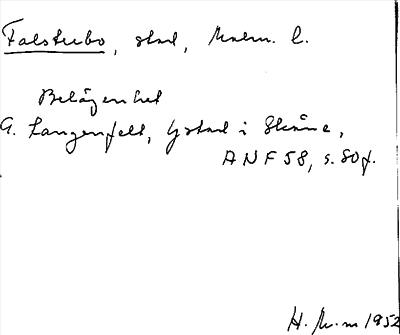 Falsterbo, stad, Malm. l.
Belägenhet
G. Langenfelt, Ystad i Skåne,
ANF 58, s. 80 f.
H. 1952